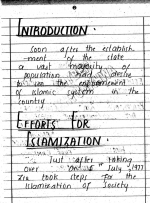 INTRODUCTION.
Soon after the establish
-ment of the state
a vast majority of
population had desire
to see the enforcement
of Islamic system in the
country
EFFORTS FOR
ISLAMIZATION.
Just after taking
over on 5 July, 1977
Zia took steps for the
Islamization of Society